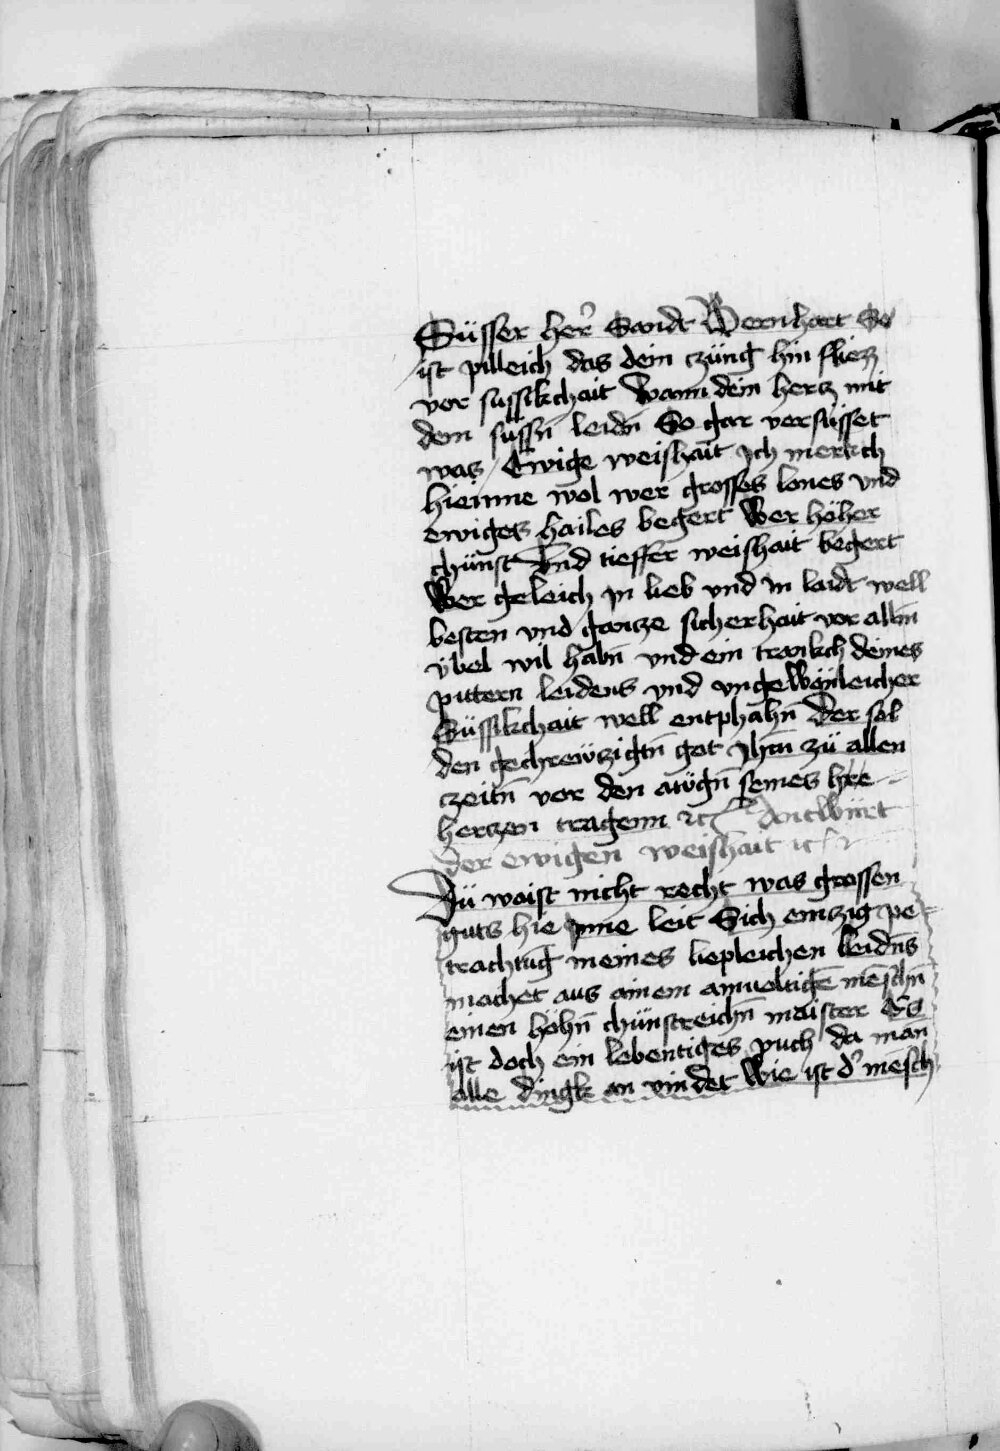 Süsser her̉ Sandt Bernhart So
ist pilleich das dein czüng hin fliez
vor sussikchait Wann dein hertz mit
dem sussn̄ leidn̄ So gar versüsset
was / Ewige weishait Ich merkch
hieinne wol wer grosses lones vnd
ewiges hailes begert Wer höher
chünst Vnd tieffer weishait begert
Wer geleich in lieb vnd in laidt well
besten vnd gancze sicherhait vor alln̄
übel wil habn̄ vnd ein trankch deines
pittern leidens vnd vngewönleicher
Süssikchait well entphahn̄ Der sol
den gechrewczigtn̄ got Jhm̄ zü allen
czeitn̄ vor den awgn̄ seines hre
herczen tragenn ⁊c Antwürt
der ewigen weishait ⁊c
Dü waist nicht recht was grossen
guts hie jnne leit Sich emczig pe
trachtūg meines liepleichen leidn̄s
machet aus ainem ainuoltigē mēschn̄
einen höhn̄ chünstreichn̄ maister Es
ist doch ein lebentiges puch da man
alle dingk an vindet Wie ist d' mēsch